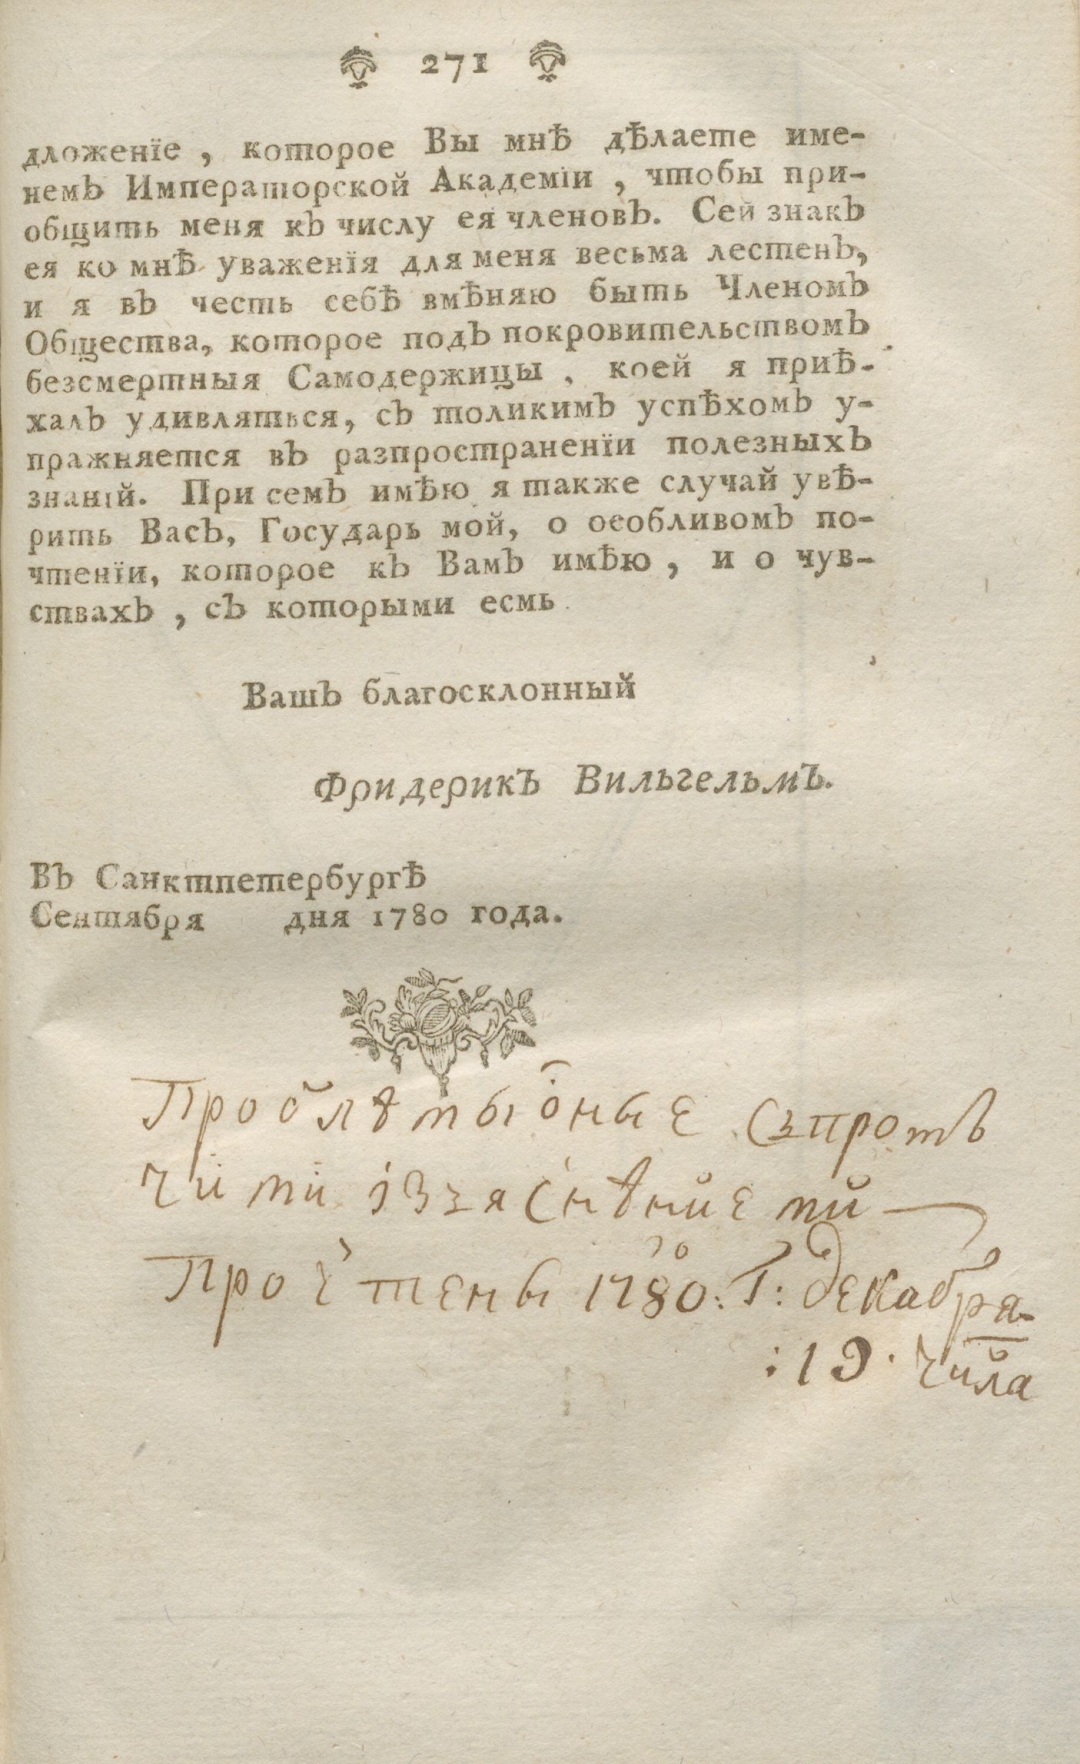 271
дложенїе , которое Вы мнѣ дѣлаете име-
немъ Императорской Академїи , чтобы при-
общить меня къ числу ея членовъ. Сей знакъ
ея ко мнѣ уваженїя для меня весьма лестенъ,
и я въ честь себѣ вмѣняю быть Членомъ
Общества, которое подъ покровительствомъ
безсмертныя Самодержицы , коей я приѣ-
халъ удивляться, съ толикимъ успѣхомъ у-
пражняется въ разпространенїи полезныхъ
знанїй. При семъ имѣю я также случай увѣ-
рить Васъ, Государь мой, о особливомъ по-
чтенїи, которое къ Вамъ имѣю , и о чув-
ствахъ , съ которыми есмь
Вашъ благосклонный
Фридерикъ Вильгельмъ.
Въ Санктпетербургѣ
Сентября дня 1780 года.
Проблѣмы оные
чими
Прочтены 1780: Г: декабря
:19. числа